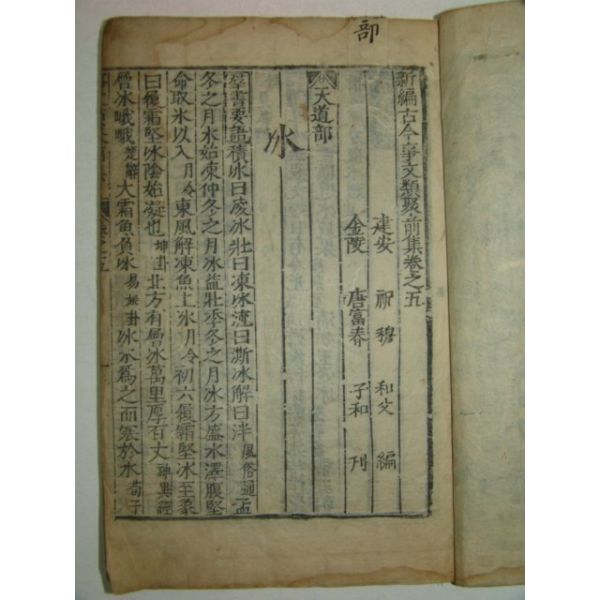 部
新編古今事文類聚前集卷之五
建安 祝穆 和父 編
金陵 唐富春 子和 刊
天道部
冰
羣書要語積冰曰凌冰壯曰凍冰流曰澌冰解曰泮風俗通孟
冬之月水始凍仲冬之月冰益壯季冬之月冰方盛水澤腹堅
命取冰以入月令東風解凍魚上冰月令初六履霜堅冰至象
曰履霜堅冰陰始凝也坤卦北方有層冰萬里厚百丈神異經
層冰峨峨楚辭大霜魚負冰易坤卦冰水爲之而寒於水荀子